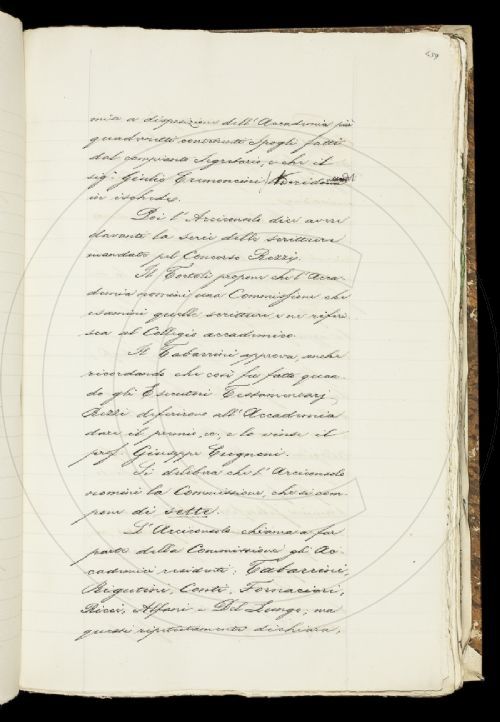 459
mise a disposizione dell'Accademia più
quadernetti contenenti spogli fatti
dal compianto Segretario, e che il
sig.r Giulio
in ischede.
Poi l'Arciconsolo dice avere
davanti la serie delle scritture
mandate pel Concorso Rezzi.
Il Tortoli propone che l'Acca-
demia nomini una Commissione che
esamini quelle scritture e ne riferi-
sca al Collegio accademico.
Il Tabarrini approva, anche
ricordando che così fu fatto quan-
do gli Esecutori Testamentarj
Rezzi deferirono all'Accademia
dare il premio, e lo vinse il
prof. Giuseppe Cugnoni.
Si delibera che l'Arciconsolo
nomini la Commissione, che si com-
pone di sette.
L'Arciconsolo chiama a far
parte della Commissione gli Ac-
cademici residenti, Tabarrini,
Rigutini, Conti, Fornaciari,
Ricci, Alfani e Del Lungo; ma
questi ripetutamente dichiara,